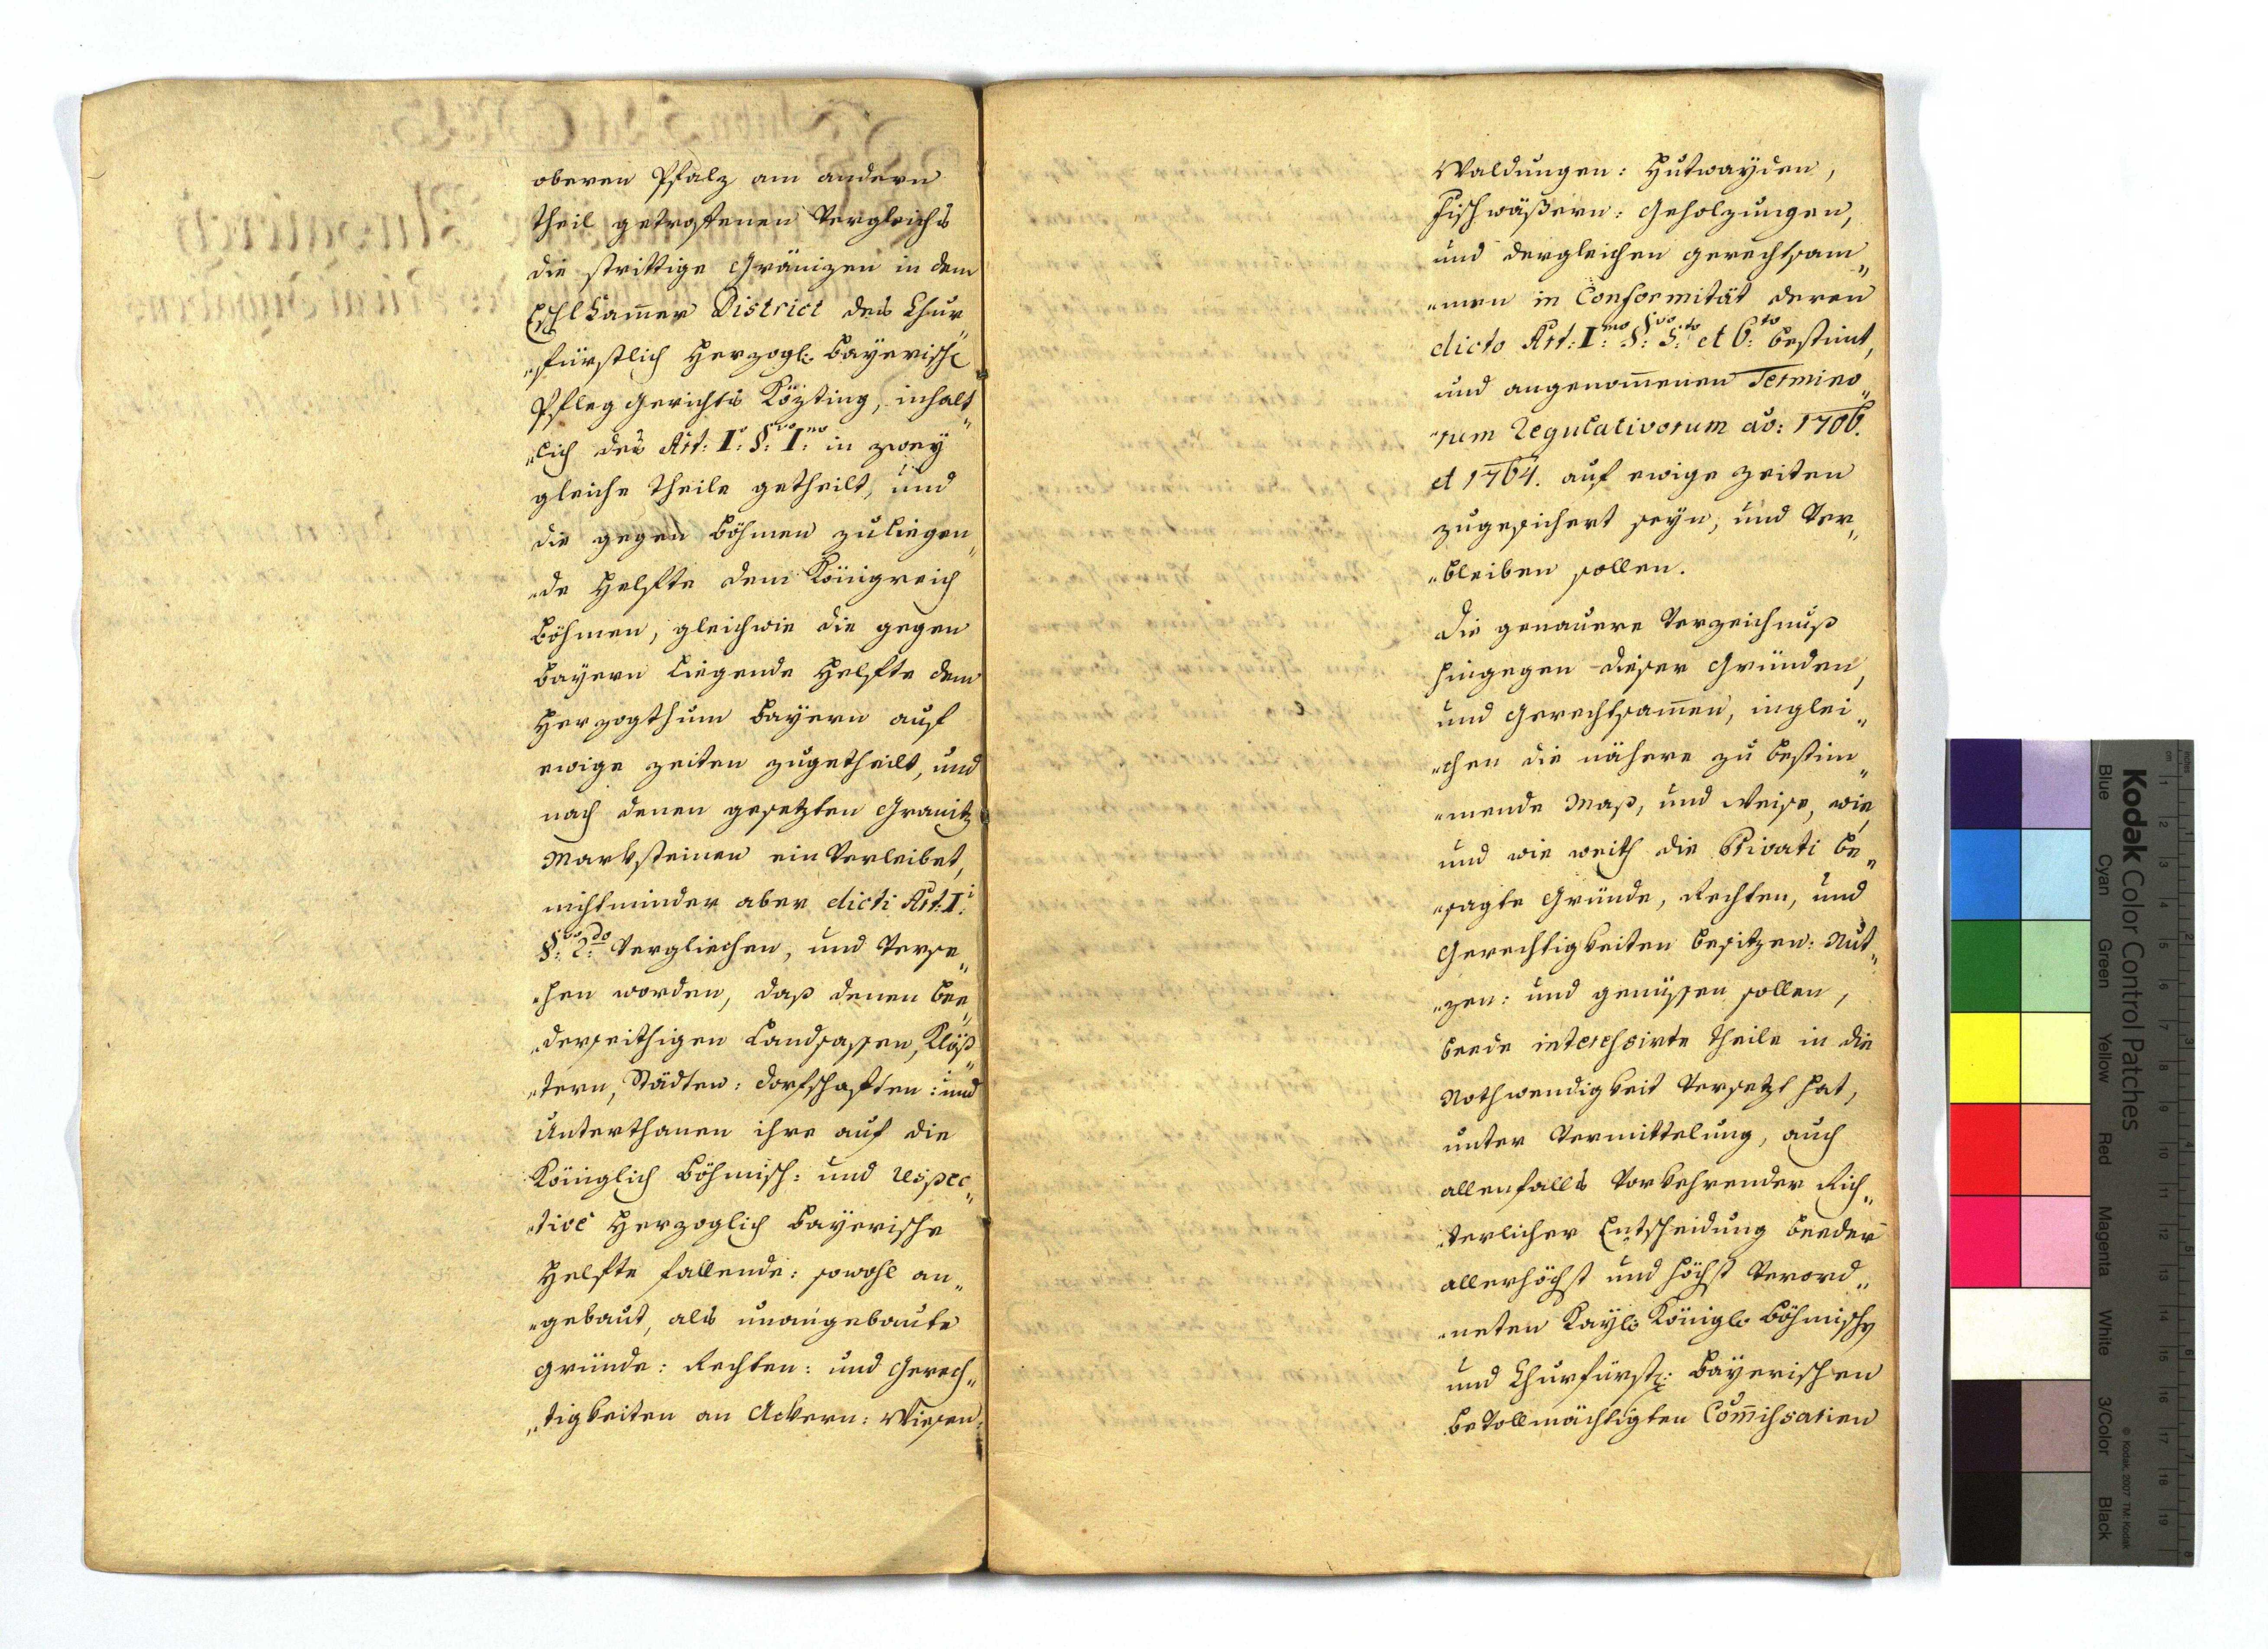 oberen Pfalz am andern
theil getroffenen Vergleichs
die strittige Gränizen in dem
Eschlkam̄er District des Chur„
„fürstlich Herzogl: bayerisch
Pfleg Gerichts Közting, inhalt„
„lich des Art: I.º §.vo I.mo in zwey
gleiche theile getheilt, und
die gegen Böhmen zuliegen„
„de Helfte dem Königreich
Böhmen, gleichwie die gegen
bayern Liegende Helfte dem
Herzogthum bayern auf
ewige zeiten zugetheilt, und
nach denen gesetzten Granitz
Marksteinen ein Verleibet,
nichtminder aber dicti Art: I.i
§.vo 2.do Vergliechen, und Verse„
„hen worden, daß denen bee„
„derseithigen Landsassen, Klös„
„tern, Städten: dorfschaften: und
Unterthanen ihre auf die
Königlich Böhmisch: und respec„
„tive Herzoglich bayerische
Helfte fallende: sowohl an„
„gebaut, als unangebaute
gründe: Rechten: und Gerech„
„tigkeiten an Ackern: Wiesen:
Waldungen: Hutwayden,
Fischwäßern: Geholzungen,
und dergleichen gerechtsam„
„men in Conformität deren
dicto Art: I.mo §.vo 5.to et 6.to bestimt,
und angenom̄enen Termino„
„rum Regulativorum ao: 1706.
et 1764. auf ewige zeiten
zugesichert seyn, und Ver„
„bleiben sollen.
Die genauere Verzeichnuß
hingegen dieser Gründen,
und Gerechtsam̄en, inglei„
„chen die nähere zu bestim„
„mende Maß, und Weise, wie,
und wie weith die Privati be„
„sagte Gründe, Rechten, und
Gerechtigkeiten besitzen: Nut„
„zen: und genüssen sollen,
beede interessirte theile in die
Nothwendigkeit Versetzt hat,
unter Vermittelung, auch
allenfalls Vorkehrender Rich„
„terlicher Entscheidung beeder
allerhöchst und höchst Verord„
„neten Kayl: Königl: Böhmisch
und Churfürstl: bayerischen
beVollmächtigten Com̄issarien